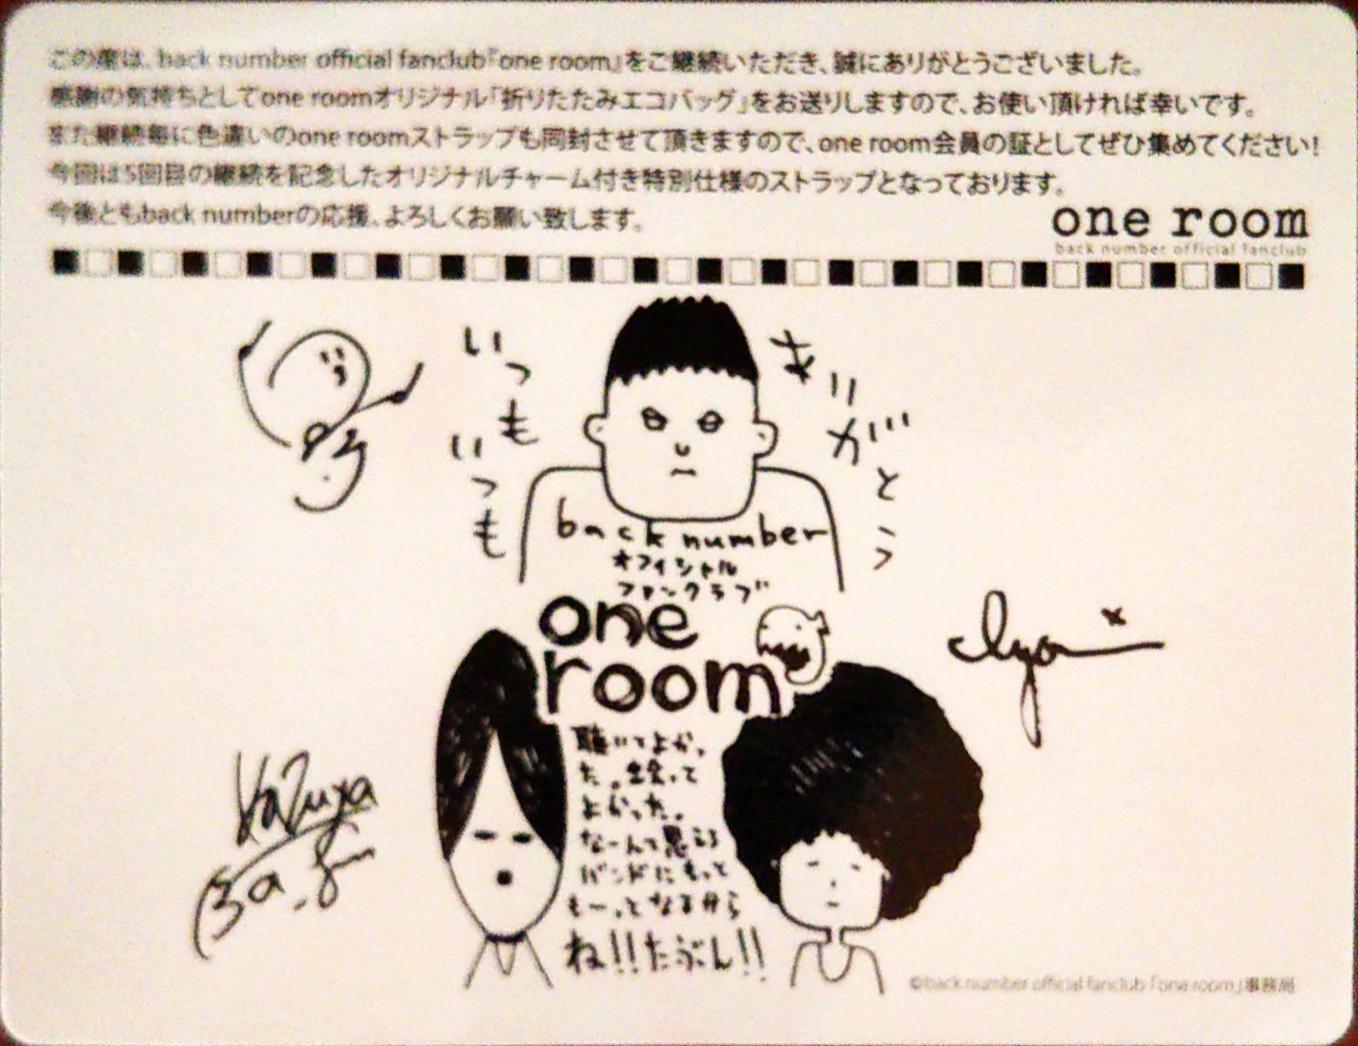 この度は、back number official fanclub『one room』をご継続いただき、誠にありがとうございました。
感謝の気持ちとしてone roomオリジナル「折りたたみエコバッグ」をお送りしますので、お使い頂ければ幸いです。
また継続毎に色違いのone roomストラップも同封させて頂きますので、one room会員の証としてぜひ集めてください！
今回は5回目の継続を記念したオリジナルチャーム付き特別仕様のストラップとなっております。
今後ともback numberの応援、よろしくお願い致します。
one room
back number official fanclub
いつも
いつも
ありがとう
back number
オフィシャル
ファンクラブ
one
room
聴いてよかっ
た。出会って
よかった。
なーんて思える
バンドにもっと
もーっとなるから
ね!!たぶん!!
Kazuya
©back number official fanclub「one room」事務局